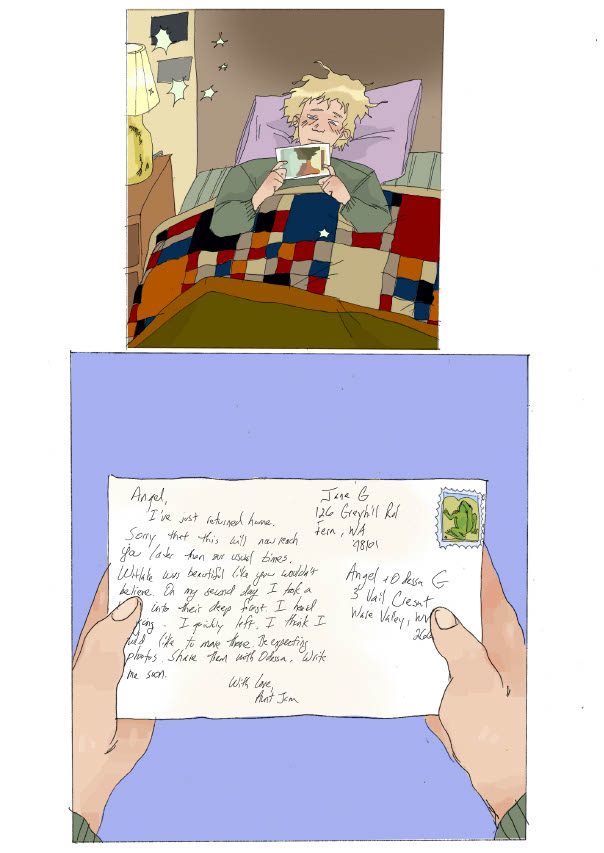 Angel,
I've just returned home.
Sorry that this will now reach
you later than our usual times.
Witlake was beautiful like you wouldn't
believe. On my second day I took a
into their deep forest. I heard
I quickly left. I think I
like to move there. Be expecting
photos. Share them with Odessa. Write
me soon.
With Love,
Aunt Jam
Jane G
126 Greyhill Rd
Fern, WA
98101
Angel + Odessa G
3 Vail Cresat
Valey, WV